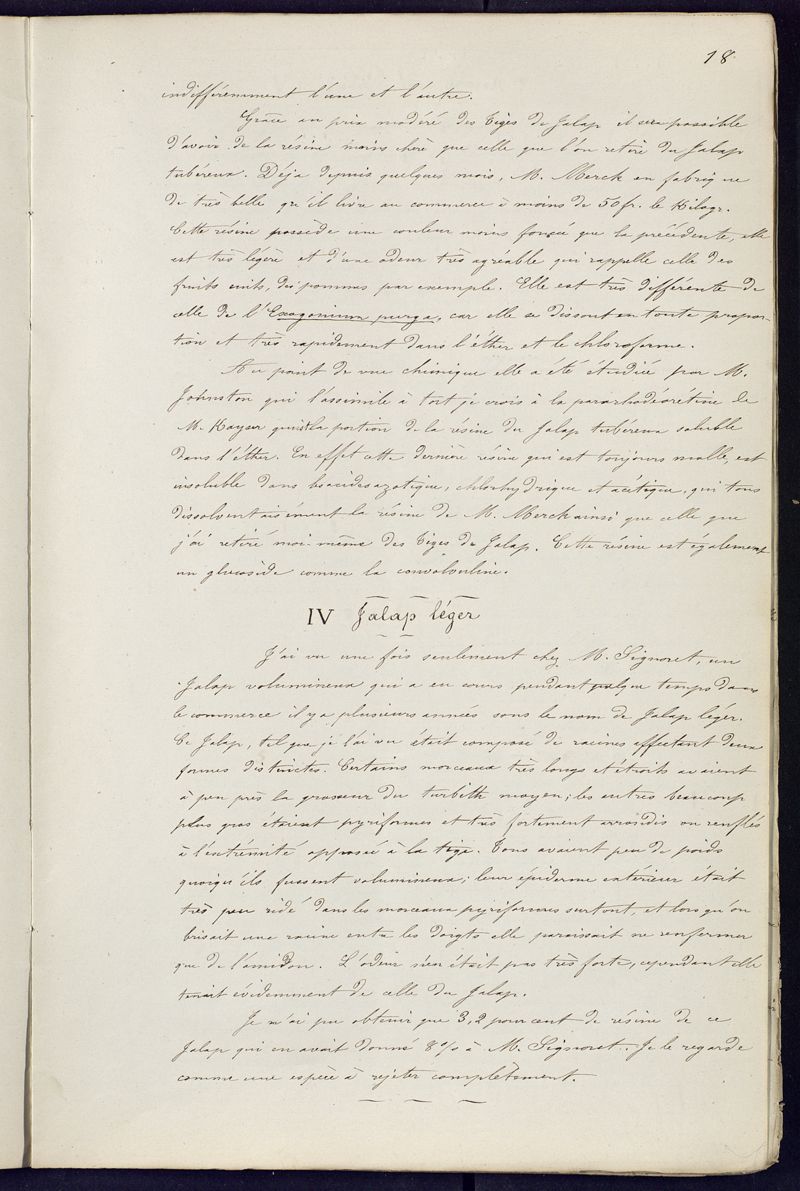 18.
indifféremment l'une et l'autre.
Grâce au prix modéré des Tiges de Jalap il sera possible
d'avoir de la résine moins cheré que celle que l'on retire du Jalap
tubéreux. Déja depuis quelques mois, M. Merck en fabrique
de très belle qu'il livre au commerce à moins de 50 fr. le Kilogr.
Cette résine possède une couleur moins foncée que la précédente, elle
est très légère et d'une odeur très agréable qui rappelle celle des
fruits cuits, des pommes par exemple. Elle est très différente de
celle de l'Exogonium purga, car elle se dissout en toute propor-
tion et très rapidement dans l'éther et le chloroforme.
Au point de vue chimique elle a été étudiée par M.
Johnston qui l'assimile à tort je crois à la pararhodéorétine de
M. Kayser qui est la portion de la résine du Jalap tubéreux soluble
dans l'éther. En effet cette dernière résine qui est toujours molle, est
insoluble dans les acides azotique, chlorhydrique et acétique, qui tous
dissolvent aisément la résine de M. Merck ainsi que celle que
j'ai retiré moi-même des Tiges de Jalap. Cette résine est également
un glucoside comme la convolvuline.
IV Jalap léger
J'ai vu une fois seulement chez M. Signoret, un
Jalap volumineux qui a eu cours pendant quelque temps dans
le commerce il y a plusieurs années sous le nom de Jalap léger.
Ce Jalap, tel que je l'ai vu était composé de racines affectant deux
formes distinctes. Certains morceaux très longs et étroits avaient
à peu près la grosseur du turbith moyen; les autres beaucoup
plus gros étaient pyriformes et très fortement arrondis ou renflés
à l'extrémité opposée à la tige. Tous avaient peu de poids
quoiqu'ils fussent volumineux; leur épiderme extérieur était
très peu ridé dans les morceaux pyriformes surtout, et lorsqu'on
brisait une racine entre les doigts elle paraissait ne renfermer
que de l'amidon. L'odeur n'en était pas très forte, cependant elle
tenait évidemment de celle du Jalap.
Je n'ai pu obtenir que 3,2 pour cent de résine de ce
Jalap qui en avait donné 8 % à M. Signoret. Je le regarde
comme une espèce à rejeter complètement.